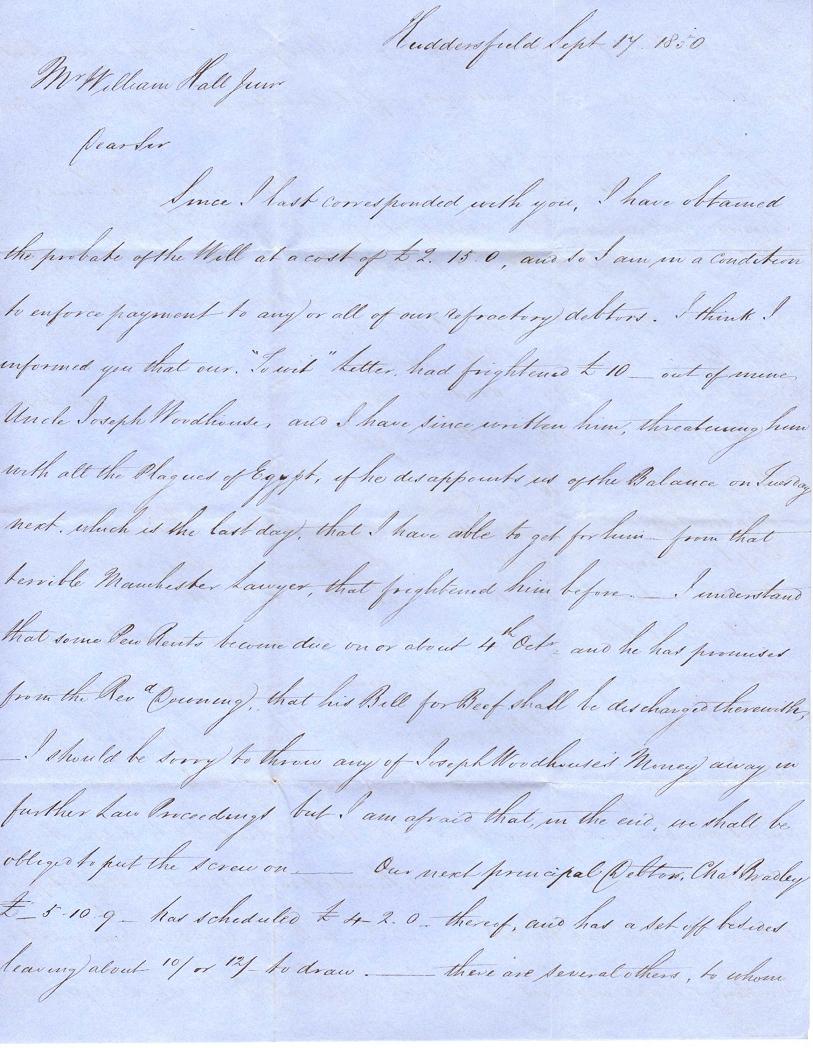 Huddersfield Sept 17 1850
Mr William Hall Junr
Dear Sir
Since I last corresponded with you, I have obtained
the probate of the Will at a cost of £2. 15. 0, and so I am in a condition
to enforce payment to any or all of our refractory debtors. I think I
informed you that our "To wit" Letter, had frightened £10 — out of mine
Uncle Joseph Woodhouse, and I have since written him, threatening him
with all the Plagues of Egypt, if he disappoints us of the Balance on Tuesday
next. which is the last day, that I have able to get for him — from that
terrible Manchester Lawyer, that frightened him before. — I understand
that some Pew Rents become due on or about 4th Octr. and he has promises
from the Revd Downing, that his Bill for Beef shall be discharged therewith,
— I should be sorry to throw any of Joseph Woodhouse's Money away in
further Law Proceedings but I am afraid that, in the end, we shall be
obliged to put the screw on — Our next principal Debtor, Chas Bradley
£ — 5-10-9 — has scheduled £4-2.0 — thereof, and has a set off besides
leaving about 10/ or 12/ to draw. — there are several others, to whom